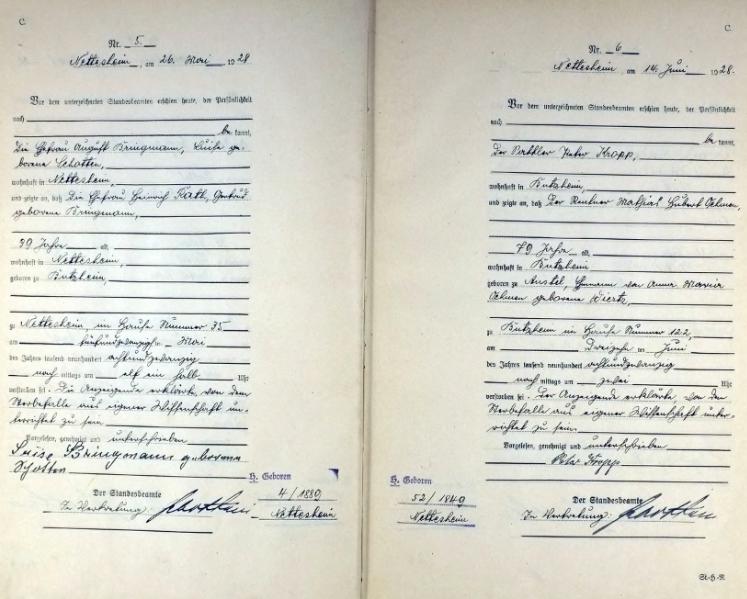 C.
Nr. 5.
Nettesheim, am 26. Mai 1928
Vor dem unterzeichneten Standesbeamten erschien heute, der Persönlichkeit
nach
be kannt,
Die Ehefrau August Bringmann, Luise ge-
borene Schotten,
wohnhaft in Nettesheim,
und zeigte an, daß Die Ehefrau Heinrich Rath, Gertrud
geborene Bringmann,
39 Jahre alt,
wohnhaft in Nettesheim,
geboren zu Butzheim,
zu Nettesheim, im Hause Nummer 35
am fünfundzwanzigsten Mai
des Jahres tausend neunhundert achtundzwanzig
nach mittags um elf ein halb Uhr
verstorben sei. Die Anzeigende erklärte, von dem
Sterbefalle aus eigener Wissenschaft un-
terrichtet zu sein.
Vorgelesen, genehmigt und unterschrieben
Luise Bringmann geborene
Schotten
H. Geboren
4/1889
Nettesheim
Der Standesbeamte
In Vertretung:
C.
Nr. 6
Nettesheim, am 14. Juni 1928.
Vor dem unterzeichneten Standesbeamten erschien heute, der Persönlichkeit
nach
be kannt,
Der Sattler Peter Kropp,
wohnhaft in Butzheim,
und zeigte an, daß Der Rentner Mathias Hubert Oehmen,
79 Jahre alt,
wohnhaft in Butzheim
geboren zu Anstel, Ehemann von Anna Maria
Oehmen geborene
zu Butzheim im Hause Nummer 122,
am Dreizehn ten Juni
des Jahres tausend neunhundert achtundzwanzig
nach mittags um zwei Uhr
verstorben sei. Der Anzeigende erklärte, von dem
Sterbefalle aus eigener Wissenschaft unter-
richtet zu sein.
Vorgelesen, genehmigt und unterschrieben
Peter Kropp
H. Geboren
52/1849
Nettesheim
Der Standesbeamte
In Vertretung:
St-H-R